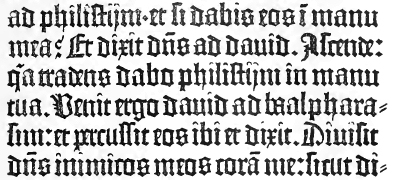 ad philistijm·et si dabis eos ī manu
mea? Et dixit dn̄s ad dauid. Ascende:
q̄a tradens dabo philistijm in manu
tua. Venit ergo dauid ad baalphara⸗
sim: et percussit eos ibi et dixit. Diuisit
dn̄s inimicos meos corā me: sicut di⸗